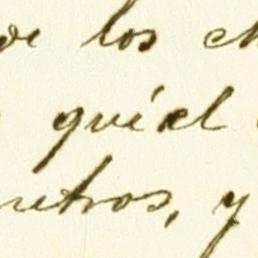 de los ch
quí el
ntros, y